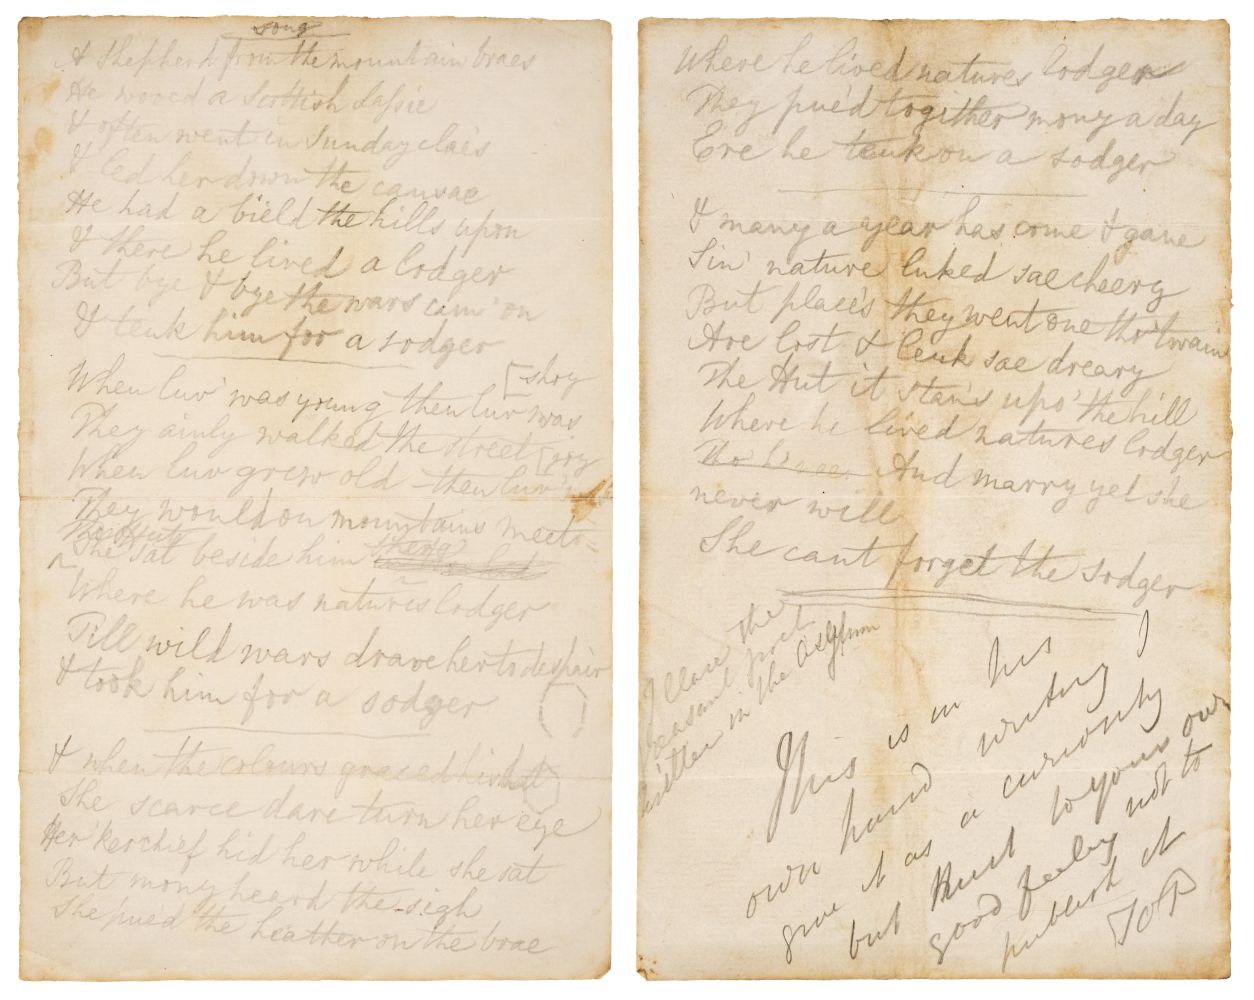 Song
A Shepherd from the mountain braes
He wooed a Scottish Lassie
& often went in Sunday clae's
& led her down the causae
He had a bield the hills upon
& there he lived a lodger
But bye & bye the wars cam' on
& teuk him for a sodger
[shoy
When luv' was young then luv was
They ainly walked the street [joy
When luv grew old then luv's
They would on mountains meet
She sat beside him
Where he was natures lodger
Till wild wars drave her to despair
& took him for a sodger
& when the colours graced his hat
She scarce dare turn her eye
Her 'kerchief hid her while she sat
But mony heard the sigh
She pued the heather on the brae
Where he lived natures lodger
They pue'd togither mony a day
Ere he teuk on a sodger
& many a year has come & gane
Sin' nature luked sae cheery
But place's they went one tho' twain
Are lost & leuk sae dreary
The Hut it stan's upo' the hill
Where he lived natures lodger
And marry yet she
never will
She cant forget the sodger
Clare the
peasant poet
written in the Asylum
This is in his
own hand writing I
give it as a curiosity
but trust to your own
good feeling not to
publish it